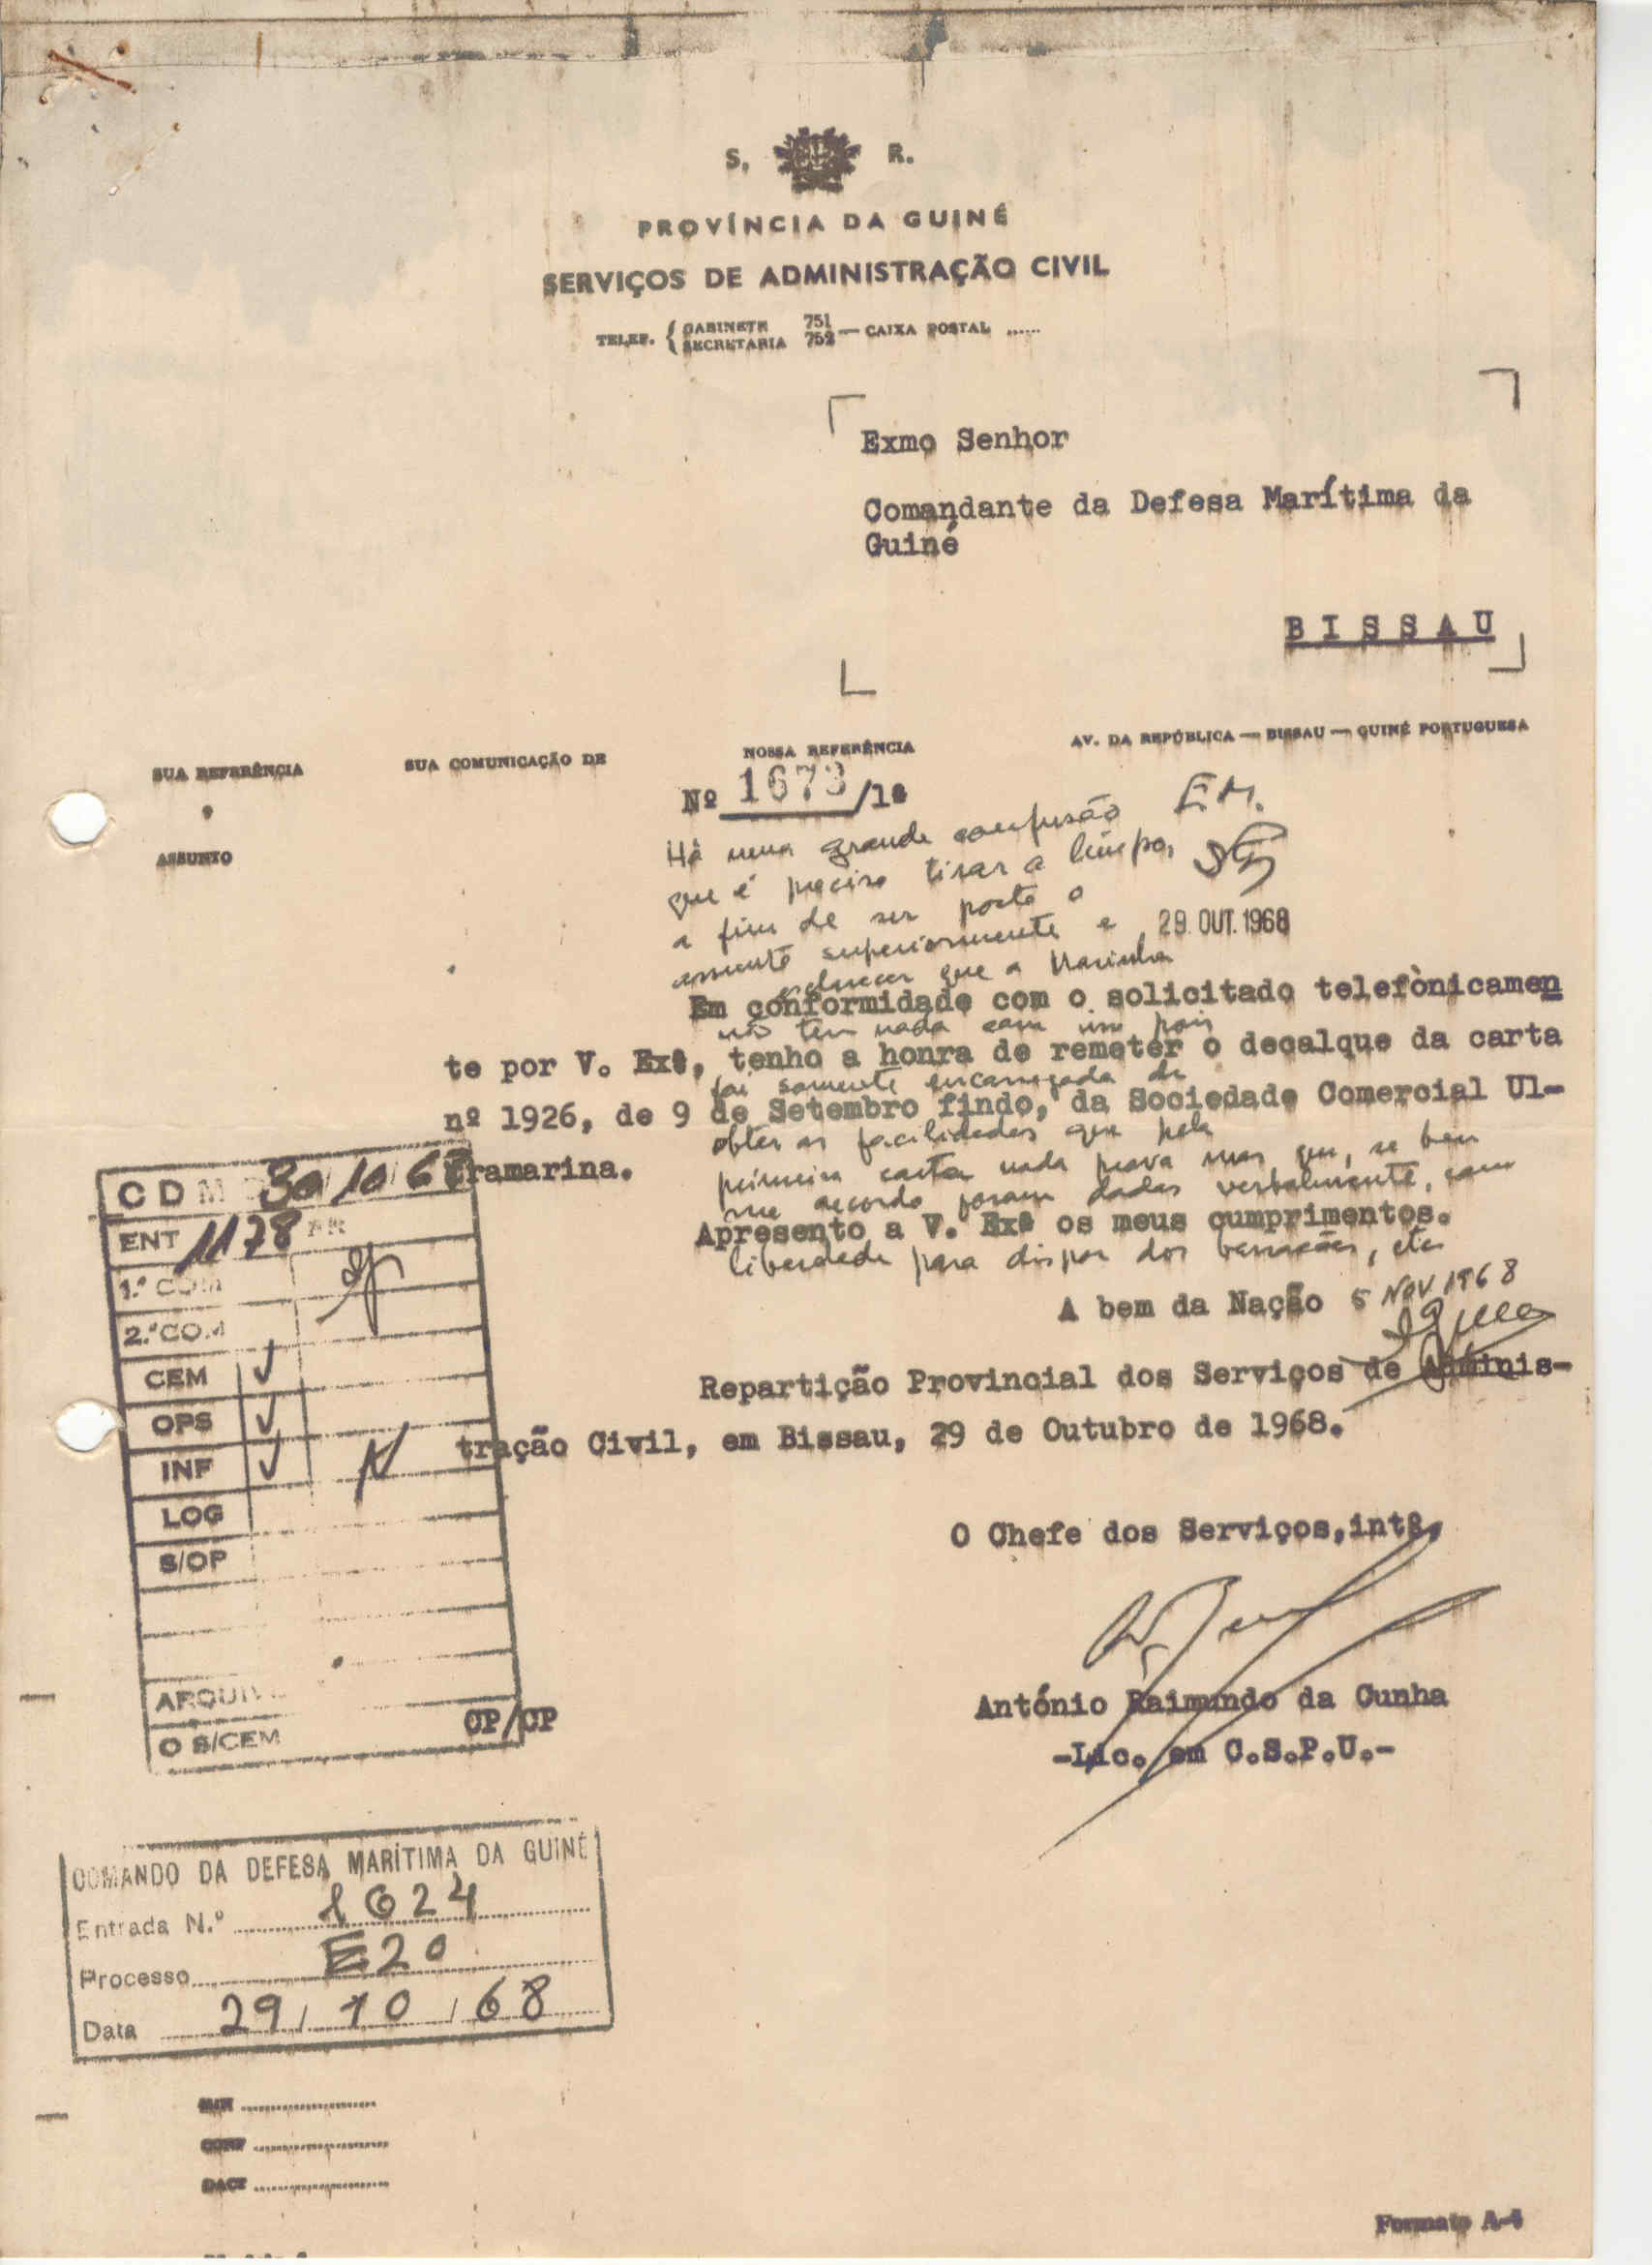 S. R.
PROVÍNCIA DA GUINÉ
SERVIÇOS DE ADMINISTRAÇÃO CIVIL
TELEF. { GABINETE 751
SECRETARIA 752 — CAIXA POSTAL ......
Exmo Senhor
Comandante da Defesa Marítima da
Guiné
BISSAU
SUA REFERÊNCIA
SUA COMUNICAÇÃO DE
NOSSA REFERÊNCIA
AV. DA REPÚBLICA — BISSAU — GUINÉ PORTUGUESA
Nº 1673/1ª
ASSUNTO
E.M.
Há uma grande confusão
que é preciso tirar a limpo,
a fim de ser posto o
assunto superiormente e
29. OUT. 1968
esclarecer que a Marinha
Em conformidade com o solicitado telefònicamen
não tem nada com isso pois
te por V. Exª, tenho a honra de remeter o decalque da carta
foi somente encarregada de
nº 1926, de 9 de Setembro findo, da Sociedade Comercial Ul-
obter as facilidades que pela
tramarina.
primeira carta nada prova mas que, se bem
me recordo foram dadas verbalmente, com
Apresento a V. Exª os meus cumprimentos.
liberdade para dispor dos barracões, etc
A bem da Nação
5 NOV 1968
Repartição Provincial dos Serviços de Adminis-
tração Civil, em Bissau, 29 de Outubro de 1968.
O Chefe dos Serviços,intº,
António Raimundo da Cunha
-Lic. em C.S.P.U.-
CDM 30/10/68
ENT 1178 PR
1.º COM
2.º COM
CEM
OPS
INF
LOG
S/OP
ARQUIV
O S/CEM
CP/CP
COMANDO DA DEFESA MARÍTIMA DA GUINÉ
Entrada N.º 1624
Processo E20
Data 29/10/68
MIN
CONF
DACT
Formato A-4